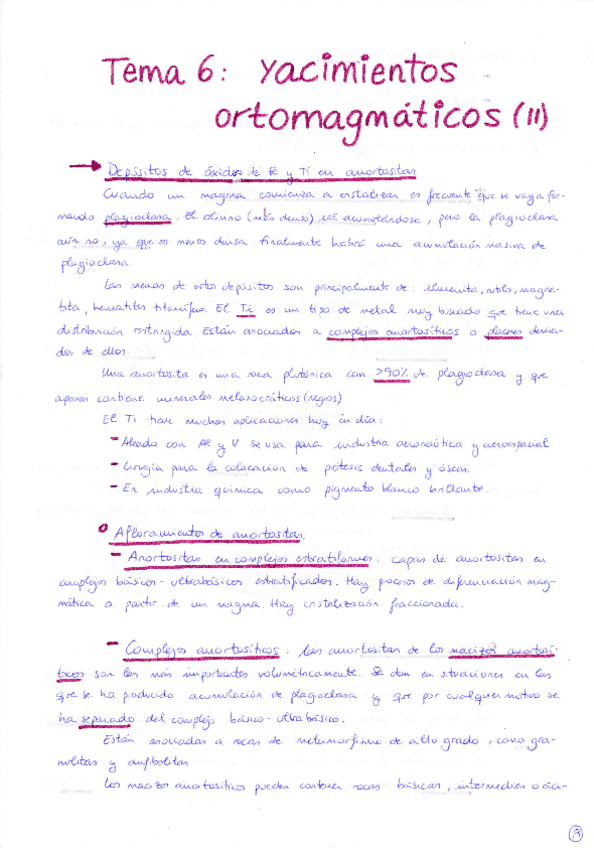 Tema 6: Yacimientos
ortomagmáticos (II)
→ Depósitos de óxidos de Fe y Ti en anortositas
Cuando un magma comienza a cristalizar es frecuente que se vaya for-
mando plagioclasa. El olivino (más denso) irá acumulándose, pero la plagioclasa
aún no, ya que es menos densa. Finalmente habrá una acumulación masiva de
plagioclasa.
Las menas de estos depósitos son principalmente de: ilmenita, rutilo, magne-
tita, hematites titanífera. El Ti es un tipo de metal muy buscado que tiene una
distribución restringida. Están asociados a complejos anortosíticos o placeres deriva-
dos de ellos.
Una anortosita es una roca plutónica con >90% de plagioclasa y que
apenas contiene minerales melanocráticos (negros)
El Ti tiene muchas aplicaciones hoy en día:
- Aleado con Al y V se usa para industria aeronaútica y aerospacial
- Cirugía para la colocación de pótesis dentales y óseas.
- En industria química como pigmento blanco brillante.
Afloramientos de anortositas.
- Anortositas en complejos estratiformes: capas de anortositas en
complejos básicos-ultrabásicos estratificados. Hay proceso de diferenciación mag-
mática a partir de un magma. Hay cristalización fraccionada.
- Complejos anortosíticos: las anortositas de los macizos anortosí-
ticos son las más importantes volumétricamente. Se dan en situaciones en las
que se ha producido acumulación de plagioclasa y que por cualquier motivo se
ha separado del complejo básico-ultrabásico.
Están asociadas a rocas de metamorfismo de alto grado, como gra-
nulitas y anfibolitas
Los macizos anortosíticos pueden contener rocas básicas, intermedias o áci-